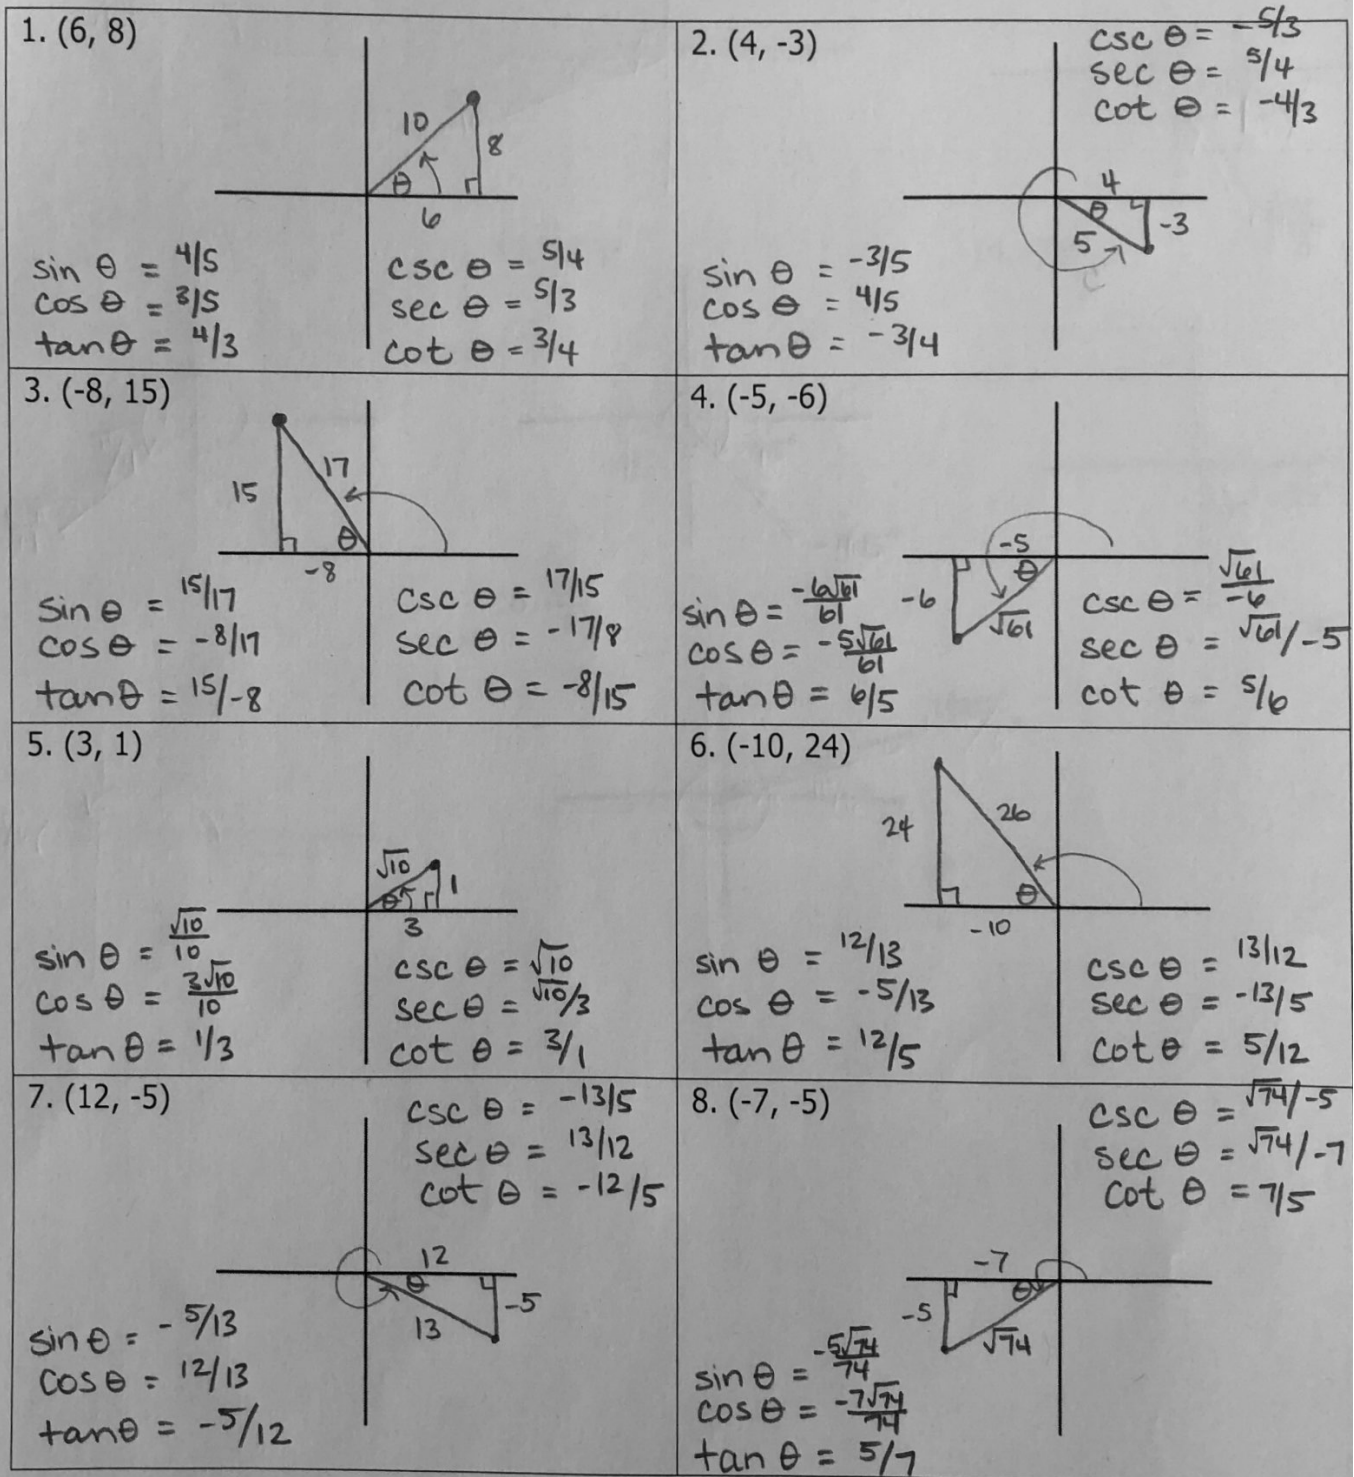 1. (6, 8)
10
8
θ
6
sin θ = 4/5
cos θ = 3/5
tan θ = 4/3
csc θ = 5/4
sec θ = 5/3
cot θ = 3/4
2. (4, -3)
csc θ = -5/3
sec θ = 5/4
cot θ = -4/3
4
θ
-3
5
sin θ = -3/5
cos θ = 4/5
tan θ = -3/4
3. (-8, 15)
17
15
θ
-8
sin θ = 15/17
cos θ = -8/17
tan θ = 15/-8
csc θ = 17/15
sec θ = -17/8
cot θ = -8/15
4. (-5, -6)
-5
θ
-6
√61
sin θ = -6√61/61
cos θ = -5√61/61
tan θ = 6/5
csc θ = √61/-6
sec θ = √61/-5
cot θ = 5/6
5. (3, 1)
√10
1
θ
3
sin θ = √10/10
cos θ = 3√10/10
tan θ = 1/3
csc θ = √10
sec θ = √10/3
cot θ = 3/1
6. (-10, 24)
26
24
θ
-10
sin θ = 12/13
cos θ = -5/13
tan θ = 12/5
csc θ = 13/12
sec θ = -13/5
cot θ = 5/12
7. (12, -5)
csc θ = -13/5
sec θ = 13/12
cot θ = -12/5
12
θ
-5
13
sin θ = -5/13
cos θ = 12/13
tan θ = -5/12
8. (-7, -5)
csc θ = √74/-5
sec θ = √74/-7
cot θ = 7/5
-7
θ
-5
√74
sin θ = -5√74/74
cos θ = -7√74/74
tan θ = 5/7